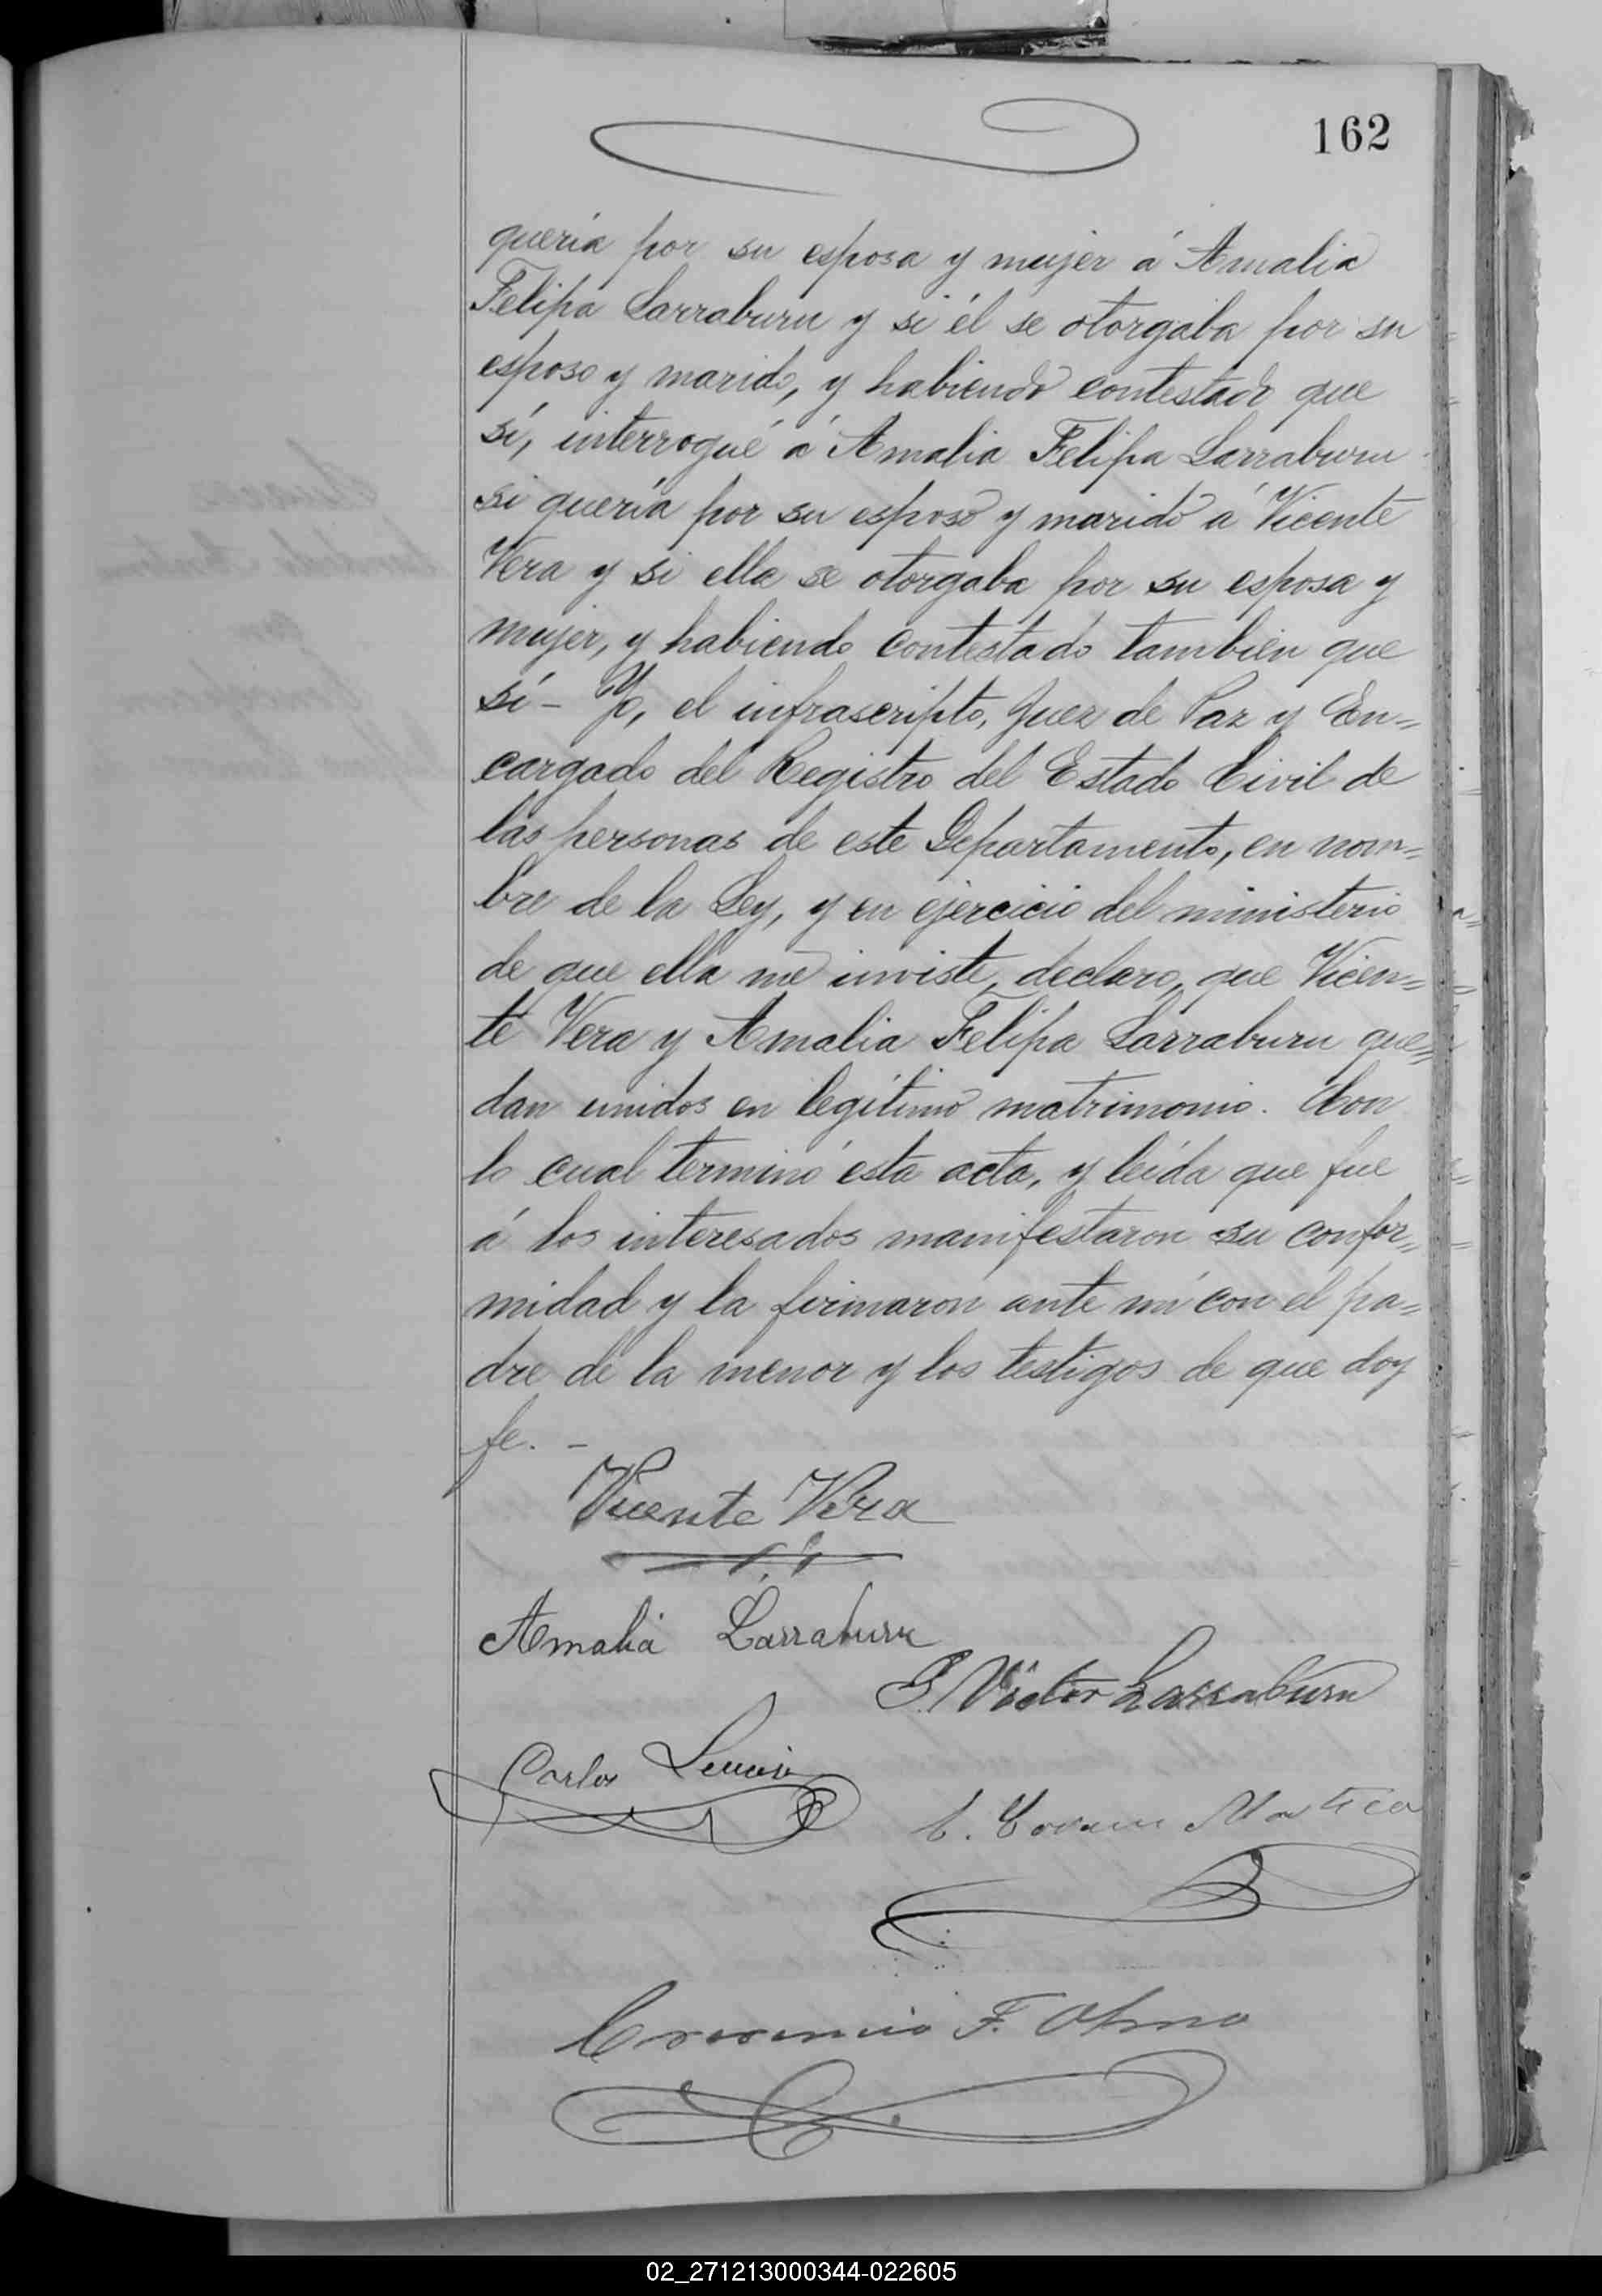 162
quería por su esposa y mujer á Amalia
Felipa Larraburu y si él se otorgaba por su
esposo y marido, y habiendo contestado que
sí, interrogué á Amalia Felipa Larraburu
si quería por su esposo y marido á Vicente
Vera y si ella se otorgaba por su esposa y
mujer, y habiendo contestado tambien que
sí - Yo, el infrascripto, Juez de Paz y En=
cargado del Registro del Estado Civil de
las personas de este Departamento, en nom=
bre de la Ley, y en ejercicio del ministerio
de que ella me inviste, declaro, que Vicen=
te Vera y Amalia Felipa Larraburu que=
dan unidos en legítimo matrimonio. Con
lo cual terminó esta acta, y leída que fue
á los interesados manifestaron su confor=
midad y la firmaron ante mí con el pa=
dre de la menor y los testigos de que doy
fe. -
Vicente Vera
Amalia Larraburu
Victor Larraburu
Carlos
F. Olmo
02_271213000344-022605